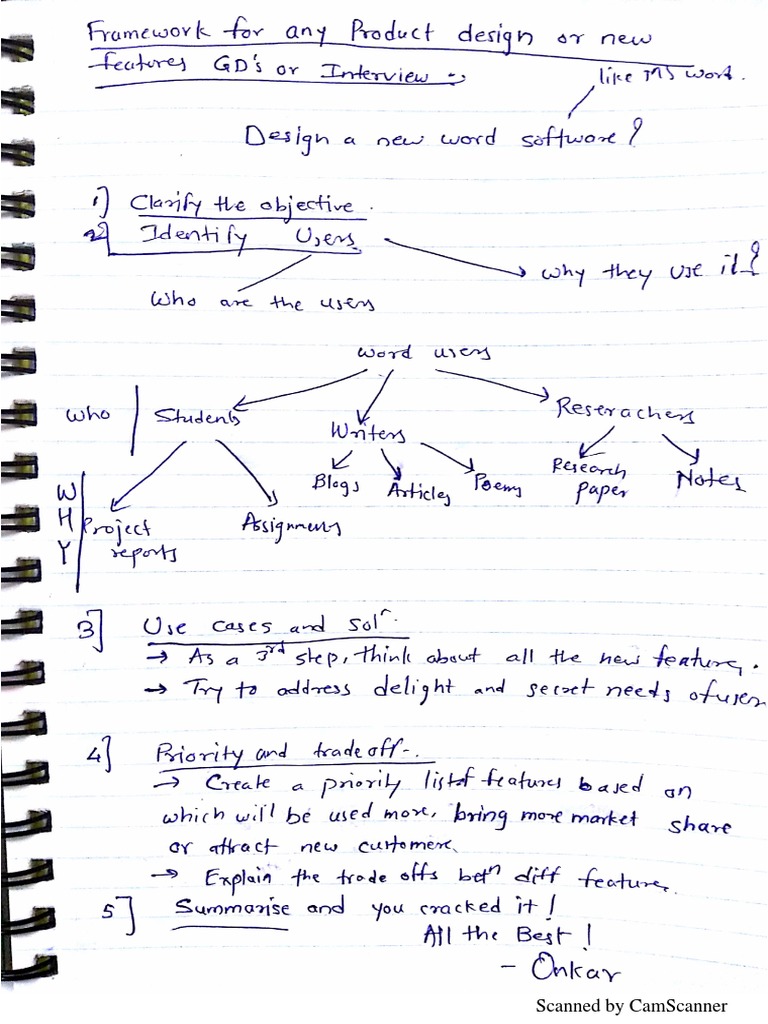 Framework for any Product design or new
features GD's or Interview :-
like MS word.
Design a new word software?
1] Clarify the objective.
2] Identify Users
why they use it?
Who are the users
word users
who Students Writers Reserachers
WHY
Project reports
Assignments
Blogs
Articles
Poems
Research paper
Notes
3] Use cases and solⁿ.
→ As a 3rd step, think about all the new features.
→ Try to address delight and secret needs of user
4] Priority and trade off-.
→ Create a priority list of features based on
which will be used more, bring more market share
or attract new customers.
→ Explain the trade offs betⁿ diff features.
5] Summarise and you cracked it!
All the Best!
- Onkar
Scanned by CamScanner